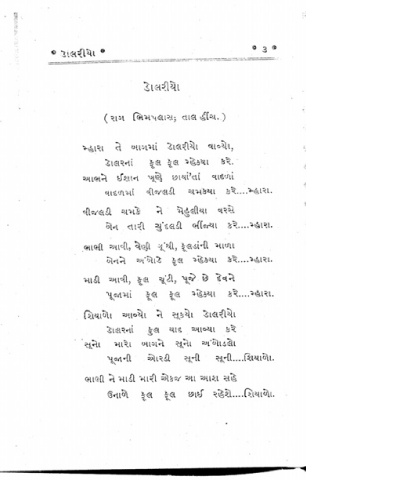 • ડોલરીયો • • ૩ •
ડોલરીયો
( રાગ ભિમપલાસ; તાલ હીંચ. )
મ્હારા તે બાગમાં ડોલરીયો વાવ્યો,
ડોલરનાં ફૂલ ફૂલ મ્હેક્યા કરે.
આભને ઈશાન ખૂણે છાયાં'તાં વાદળાં
વાદળમાં વીજલડી ચમક્યા કરે....મ્હારા.
વીજલડી ચમકે ને મેહુલીયા વરસે
બેન તારી ચુંદલડી ભીંજ્યા કરે....મ્હારા.
ભાભી આવી, વેણી ગૂંથી, ફૂલડાંની માળા
બેનને અંબોડે ફૂલ મ્હેક્યા કરે....મ્હારા.
માડી આવી, ફૂલ ચૂંટી, પૂજે છે દેવને
પૂજામાં ફૂલ ફૂલ મ્હેક્યા કરે....મ્હારા.
શિયાળો આવ્યો ને સૂકયો ડોલરીયો
ડોલરનાં ફુલ યાદ આવ્યા કરે
સૂનો મારો બાગને સૂનો અંબોડલો
પૂજાની ઓરડી સૂની સૂની....શિયાળો.
ભાભી ને માડી મારી એકજ આ આશ સહે
ઉનાળે ફૂલ ફૂલ છાઈ રહેશે....શિયાળો.